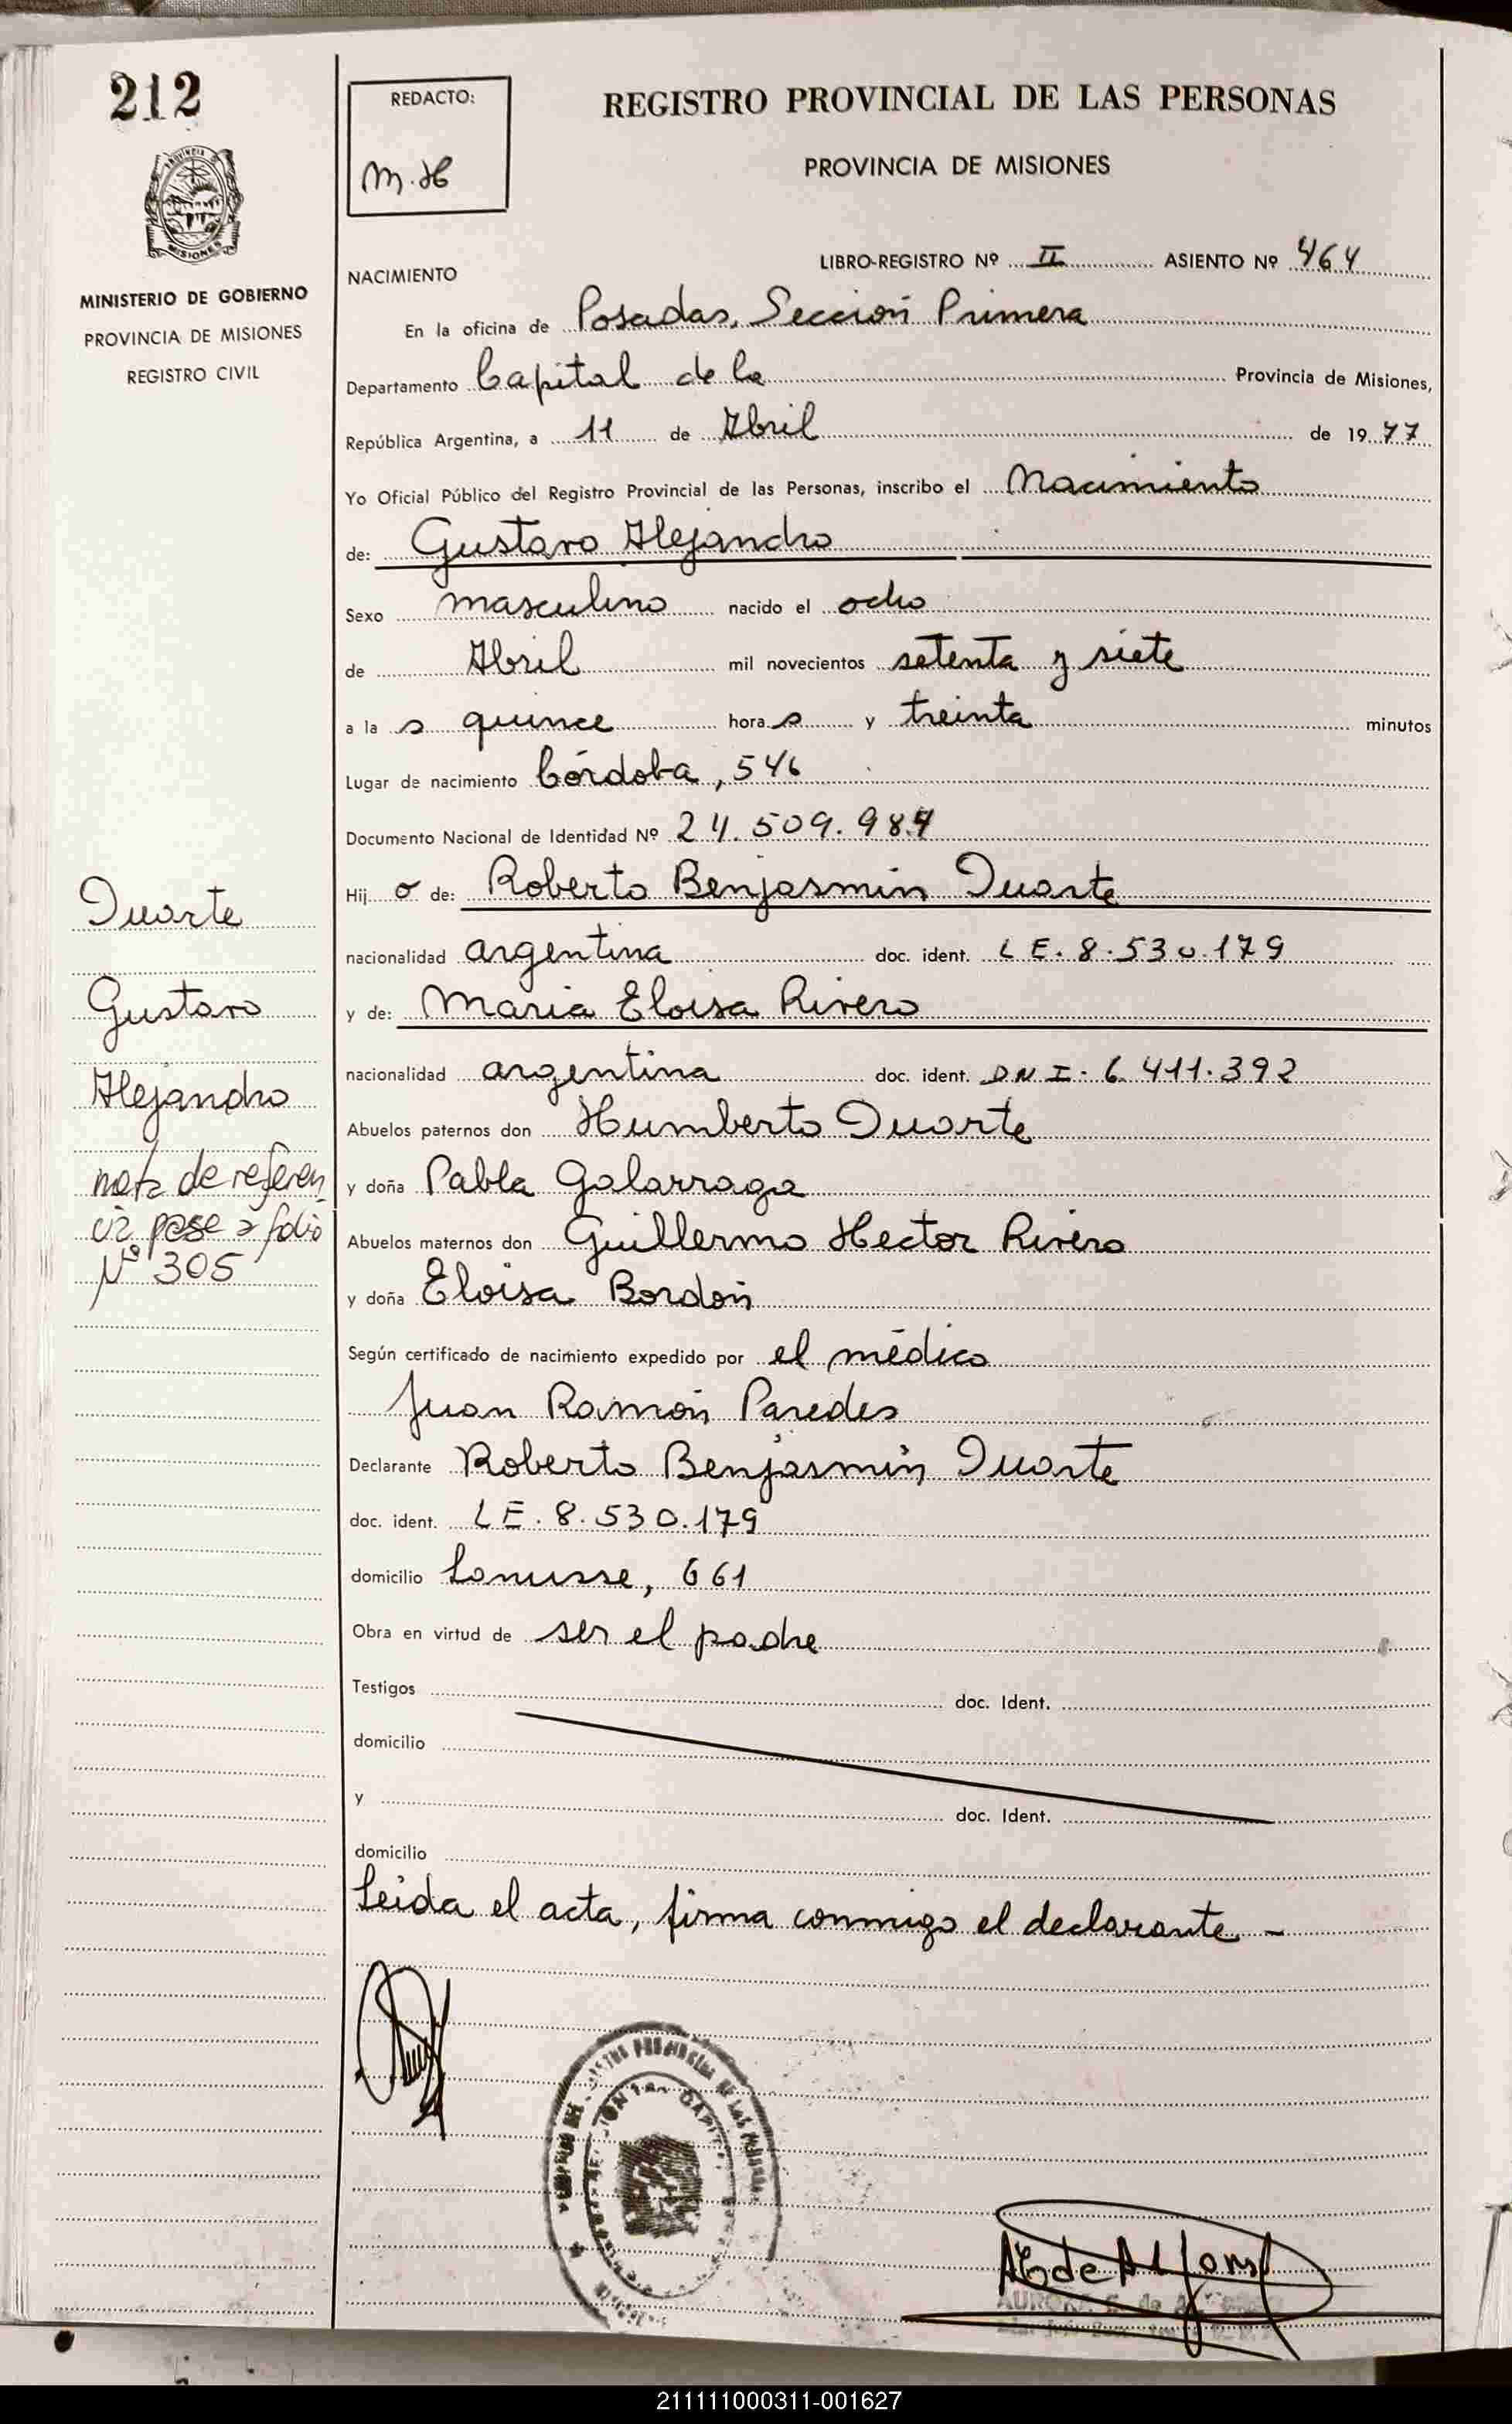 212
PROVINCIA
MISIONES
MINISTERIO DE GOBIERNO
PROVINCIA DE MISIONES
REGISTRO CIVIL
REDACTO:
M.H
REGISTRO PROVINCIAL DE LAS PERSONAS
PROVINCIA DE MISIONES
LIBRO-REGISTRO Nº II ASIENTO Nº 464
NACIMIENTO
En la oficina de Posadas, Sección Primera
Departamento Capital de la Provincia de Misiones,
República Argentina, a 11 de Abril de 1977
Yo Oficial Público del Registro Provincial de las Personas, inscribo el Nacimiento
de: Gustavo Alejandro
Sexo masculino nacido el ocho
de Abril mil novecientos setenta y siete
a la s quince hora s y treinta minutos
Lugar de nacimiento Córdoba, 546
Documento Nacional de Identidad Nº 24.509.987
Hij o de: Roberto Benjasmín Duarte
nacionalidad argentina doc. ident. LE. 8.530.179
y de: Maria Eloisa Rivero
nacionalidad argentina doc. ident. DNI. 6.411.392
Abuelos paternos don Humberto Duarte
y doña Pabla Galarraga
Abuelos maternos don Guillermo Hector Rivero
y doña Eloisa Bordón
Según certificado de nacimiento expedido por el médico
Juan Ramón Paredes
Declarante Roberto Benjasmín Duarte
doc. ident. LE. 8.530.179
domicilio Lanusse, 661
Obra en virtud de ser el padre
Testigos doc. Ident.
domicilio
y doc. Ident.
domicilio
Leida el acta, firma conmigo el declarante -
Duarte
Gustavo
Alejandro
nota de referen
cia pase a folio
Nº 305
211111000311-001627